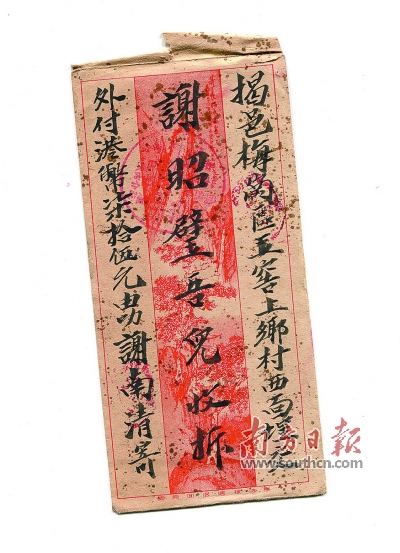 揭邑梅崗區五窖上鄉村西面
謝昭璧吾兒收拆
外付港幣柒拾伍元 男謝南清寄
南方日報
www.southcn.com